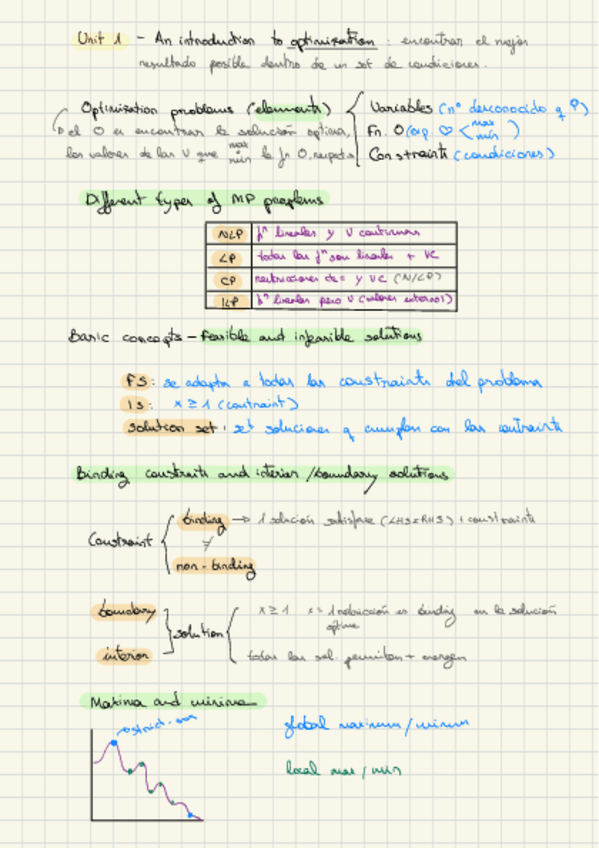 Unit 1 - An introduction to optimization : encontrar el mejor
resultado posible dentro de un set de condiciones.
Optimization problems (elements)
Variables (nº desconocido q ?)
el O es encontrar la solución optima,
Fn. O (exp. max min)
los valores de las V que max min la fn O, respeta
Constraints (condiciones)
Different types of MP
NLP fⁿ lineales y V continuas
LP todas las fⁿ son lineales + VC
CP restricciones de = y VC (N/LP)
ILP fⁿ lineales pero V (valores enteros)
Basic concepts - feasible and infeasible solutions
FS: se adapta a todas las constraints del problema
IS: x ≥ 1 (contraint)
solution set: set soluciones q cumplan con las contraints
Binding constraints and interior /boundary solutions
Constraint
binding → 1 solución satisface (LHS=RHS) 1 constraint
≠
non-binding
boundary
x ≥ 1 x = 1 restricción es binding en la solución
optima
solution
interior
todas las sol. permiten + margen
Maxima and minima
strict max
global maximum / minimum
local max / min